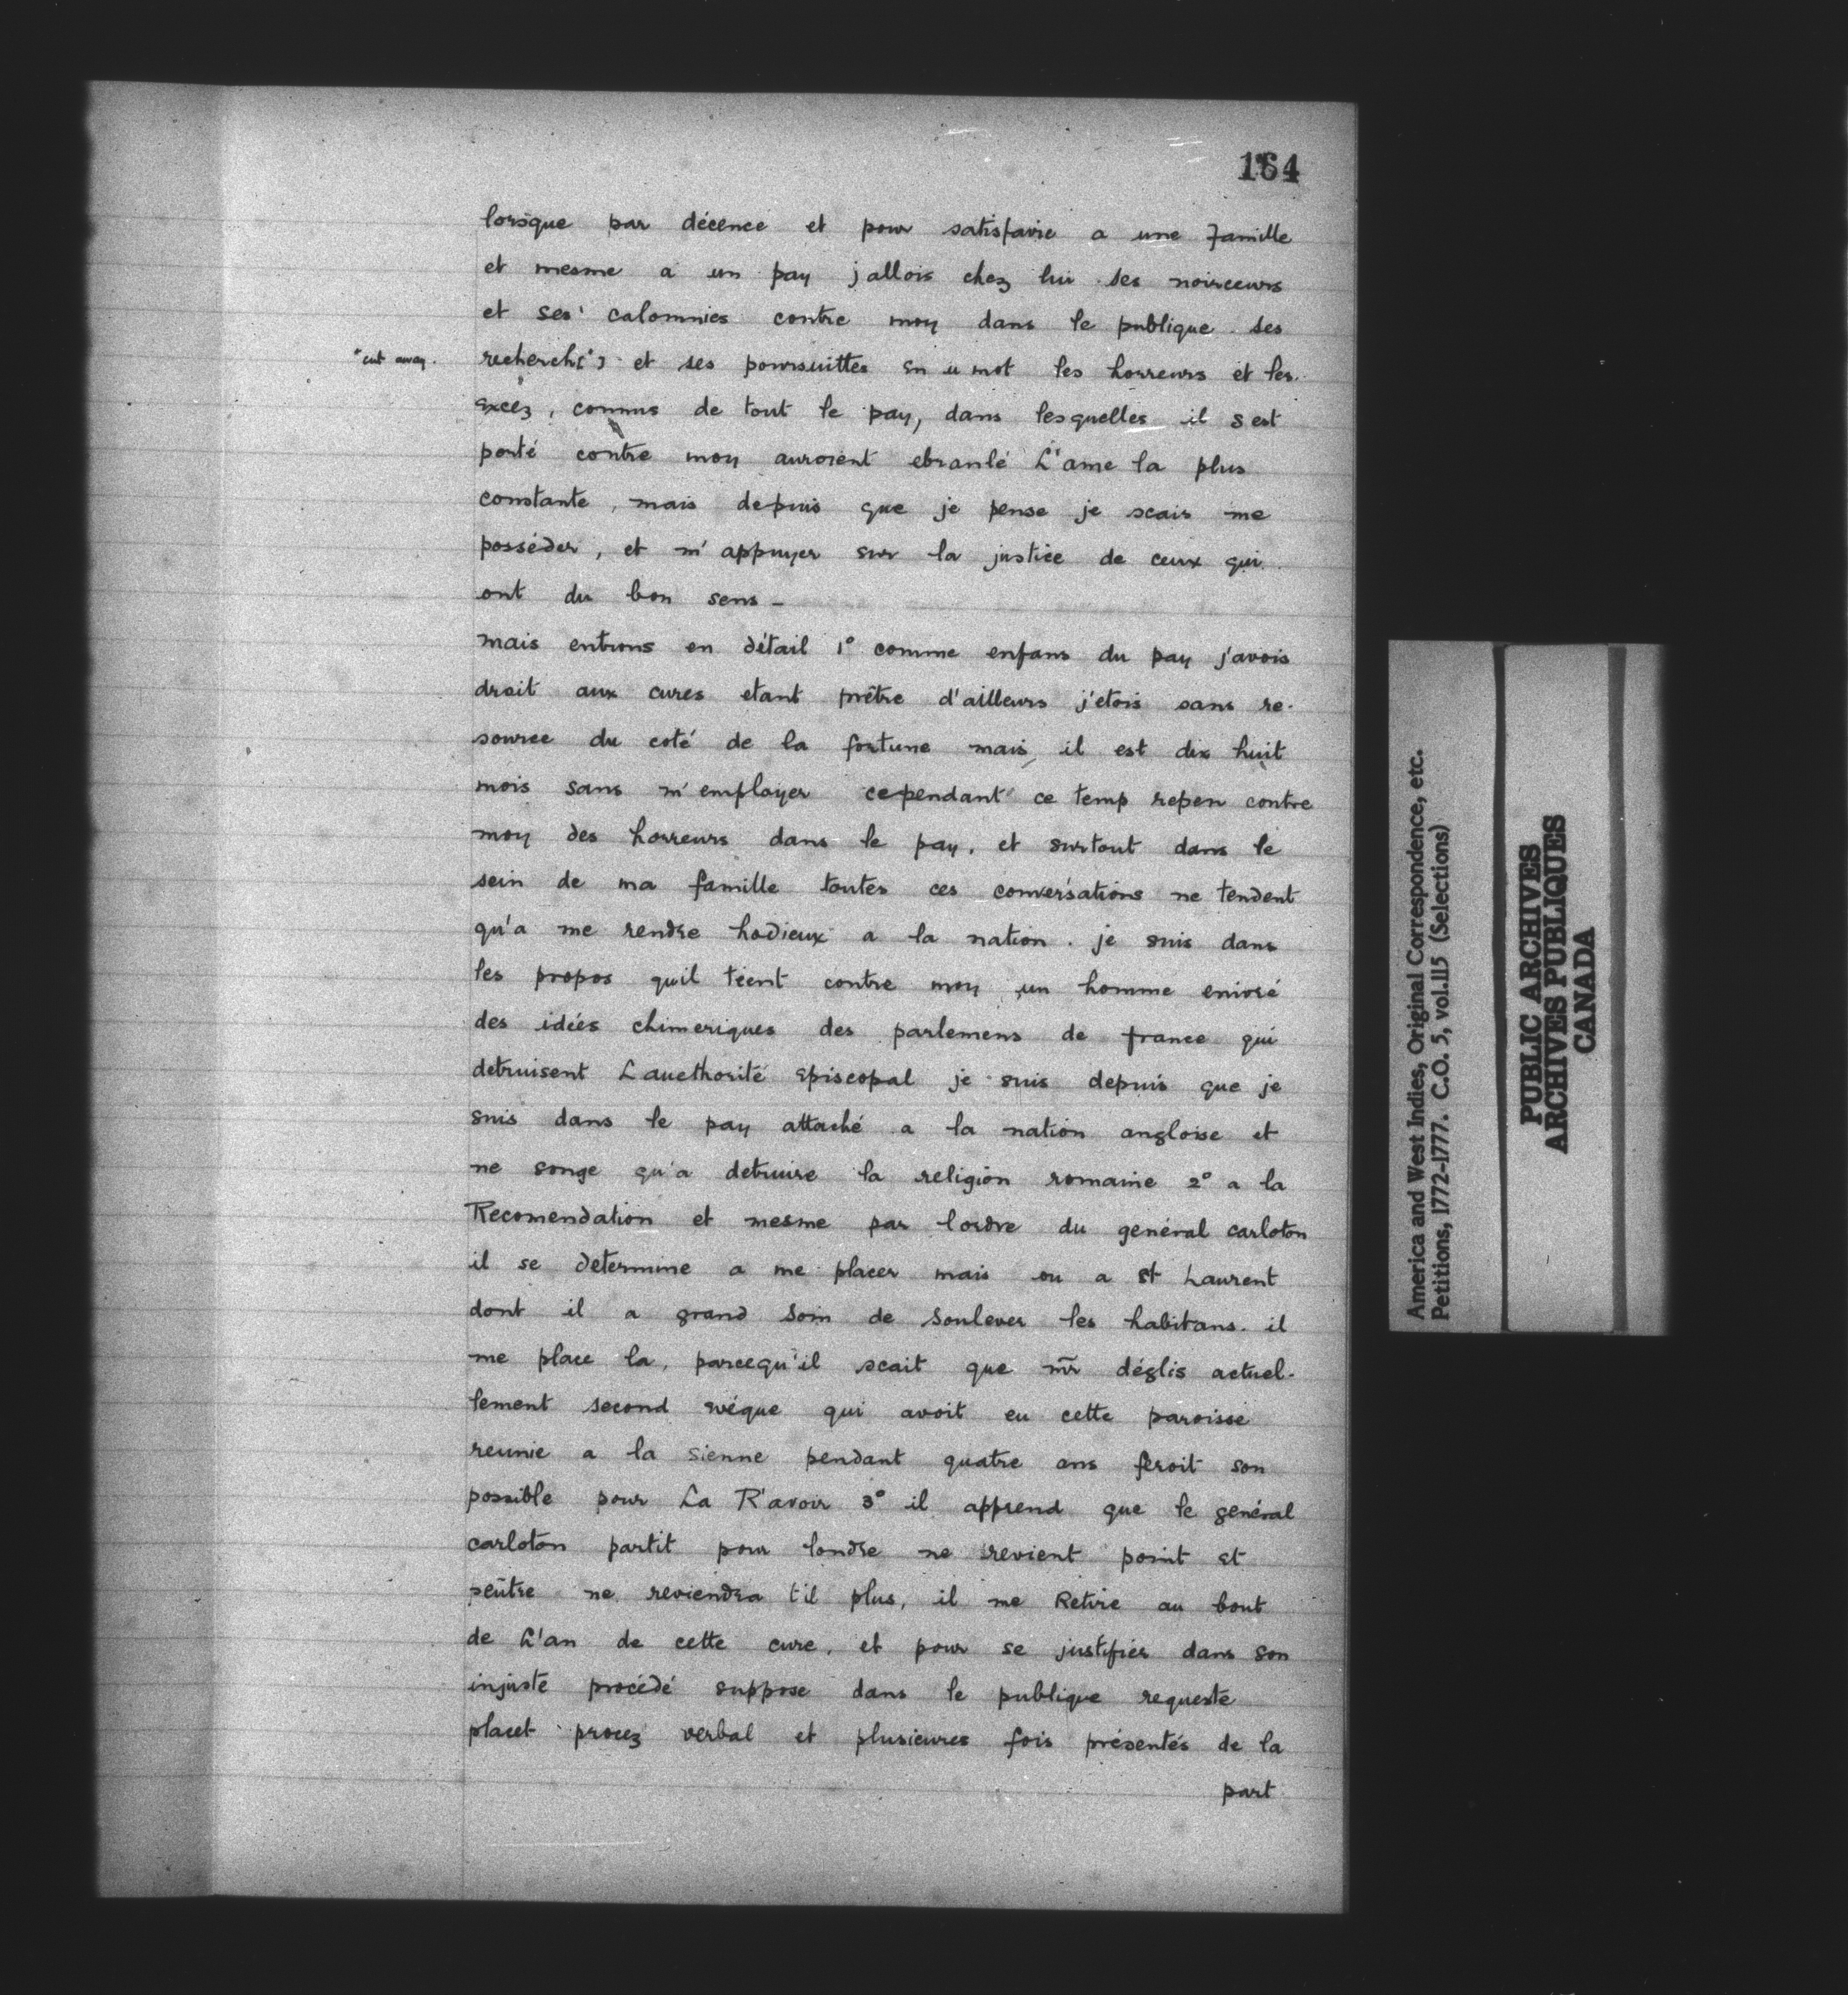 164
lorsque par décence et pour satisfaire a une famille
et mesme a un pay j allois chez lui ses noirceurs
et ses calomnies contre moy dans le publique ses
*cut away.
recherch[*] et ses poursuittes en u mot les horreurs et les
excez, connus de tout le pay, dans lesquelles il s est
porté contre moy auroient ebranlé L'ame la plus
constante, mais depuis que je pense je scais me
posséder, et m'appuyer sur la justice de ceux qui
ont du bon sens -
mais entrons en détail 1° comme enfans du pay j'avois
droit aux cures etant prêtre d'ailleurs j'etois sans re-
source du coté de la fortune mais, il est dix huit
mois sans m'employer cependant ce temp repen contre
moy des horreurs dans le pay, et surtout dans le
sein de ma famille toutes ces conversations ne tendent
qu'a me rendre hodieux a la nation. je suis dans
les propos quil tient contre moy un homme enivré
des idées chimeriques des parlemens de france qui
detruisent Lauethorité Episcopal je suis depuis que je
suis dans le pay attaché a la nation angloise et
ne songe qu'a detruire la religion romaine 2° a la
Recomendation et mesme par l'ordre du general carloton
il se determine a me placer mais ou a st Laurent
dont il a grand soin de soulever les habitans. il
me place la, parcequ'il scait que mr déglis actuel-
lement second evéque qui avoit eu cette paroisse
reunie a la sienne pendant quatre ans feroit son
possible pour La R'avoir 3° il apprend que le genéral
carloton partit pour londre ne revient point et
peûtre ne reviendra t'il plus, il me Retire au bout
de L'an de cette cure, et pour se justifiér dans son
injuste procédé suppose dans le publique requeste
placet procez verbal et plusieures fois présentés de la
part
America and West Indies, Original Correspondence, etc.
Petitions, 1772-1777. C.O. 5, vol.115 (Selections)
PUBLIC ARCHIVES
ARCHIVES PUBLIQUES
CANADA